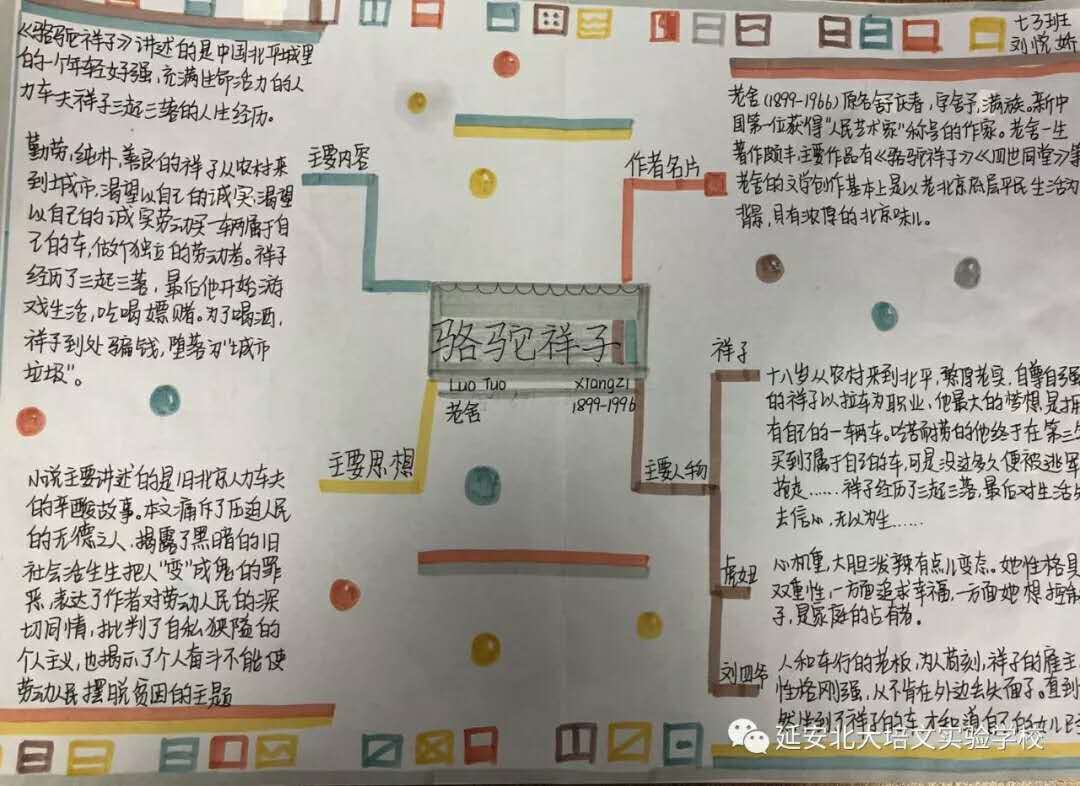 七3班
刘悦娇
《骆驼祥子》讲述的是中国北平城里
的一个年轻好强,充满生命活力的人
力车夫祥子三起三落的人生经历。
主要内容
勤劳,纯朴,善良的祥子从农村来
到城市,渴望以自己的诚实,渴望
以自己的诚实劳动买一车两属于自
己的车,做个独立的劳动者。祥子
经历了三起三落,最后他开始游
戏生活,吃喝嫖赌。为了喝酒,
祥子到处骗钱,堕落为"城市
垃圾"。
作者名片
老舍(1899-1966)原名舒庆春,字舍予,满族。新中
国第一位获得"人民艺术家"称号的作家。老舍一生
著作颇丰主要作品有《骆驼祥子》《四世同堂》等
老舍的文学创作基本上是以老北京底层平民生活为
背景,具有浓厚的北京味儿。
骆驼祥子
Luo Tuo xiangzi
老舍 1899-1996
主要思想
小说主要讲述的是旧北京人力车夫
的辛酸故事。本文痛斥了压迫人民
的无德之人,揭露了黑暗的旧
社会活生生把人"变"成鬼的罪
恶,表达了作者对劳动人民的深
切同情,批判了自私狭隘的
个人主义,也揭示了个人奋斗不能使
劳动人民摆脱贫困的主题
主要人物
祥子
十八岁从农村来到北平,憨厚老实,自尊自强
的祥子以拉车为职业,他最大的梦想是拥
有自己的一车两车。吃苦耐劳的他终于在第三年
买到了属于自己的车,可是没过多久便被逃军
抢走……祥子经历了三起三落,最后对生活失
去信心,无以为生……
虎妞
心机重,大胆泼辣有点儿变态。她性格具
双重性,一方面追求幸福,一方面她想控制
子,是家庭的占有者。
刘四爷
人和车行的老板,为人苛刻,祥子的雇主
性格刚强,从不肯在外边丢失面子。直到
然坐到了祥子的车,才知道自己的女儿
延安北大培文实验学校